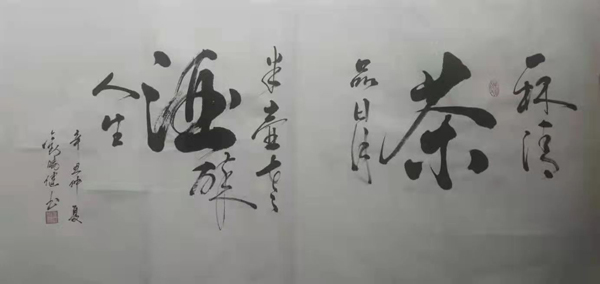 一杯清
茶
品日月
半壶老
酒
醉
人生
辛丑仲夏
书